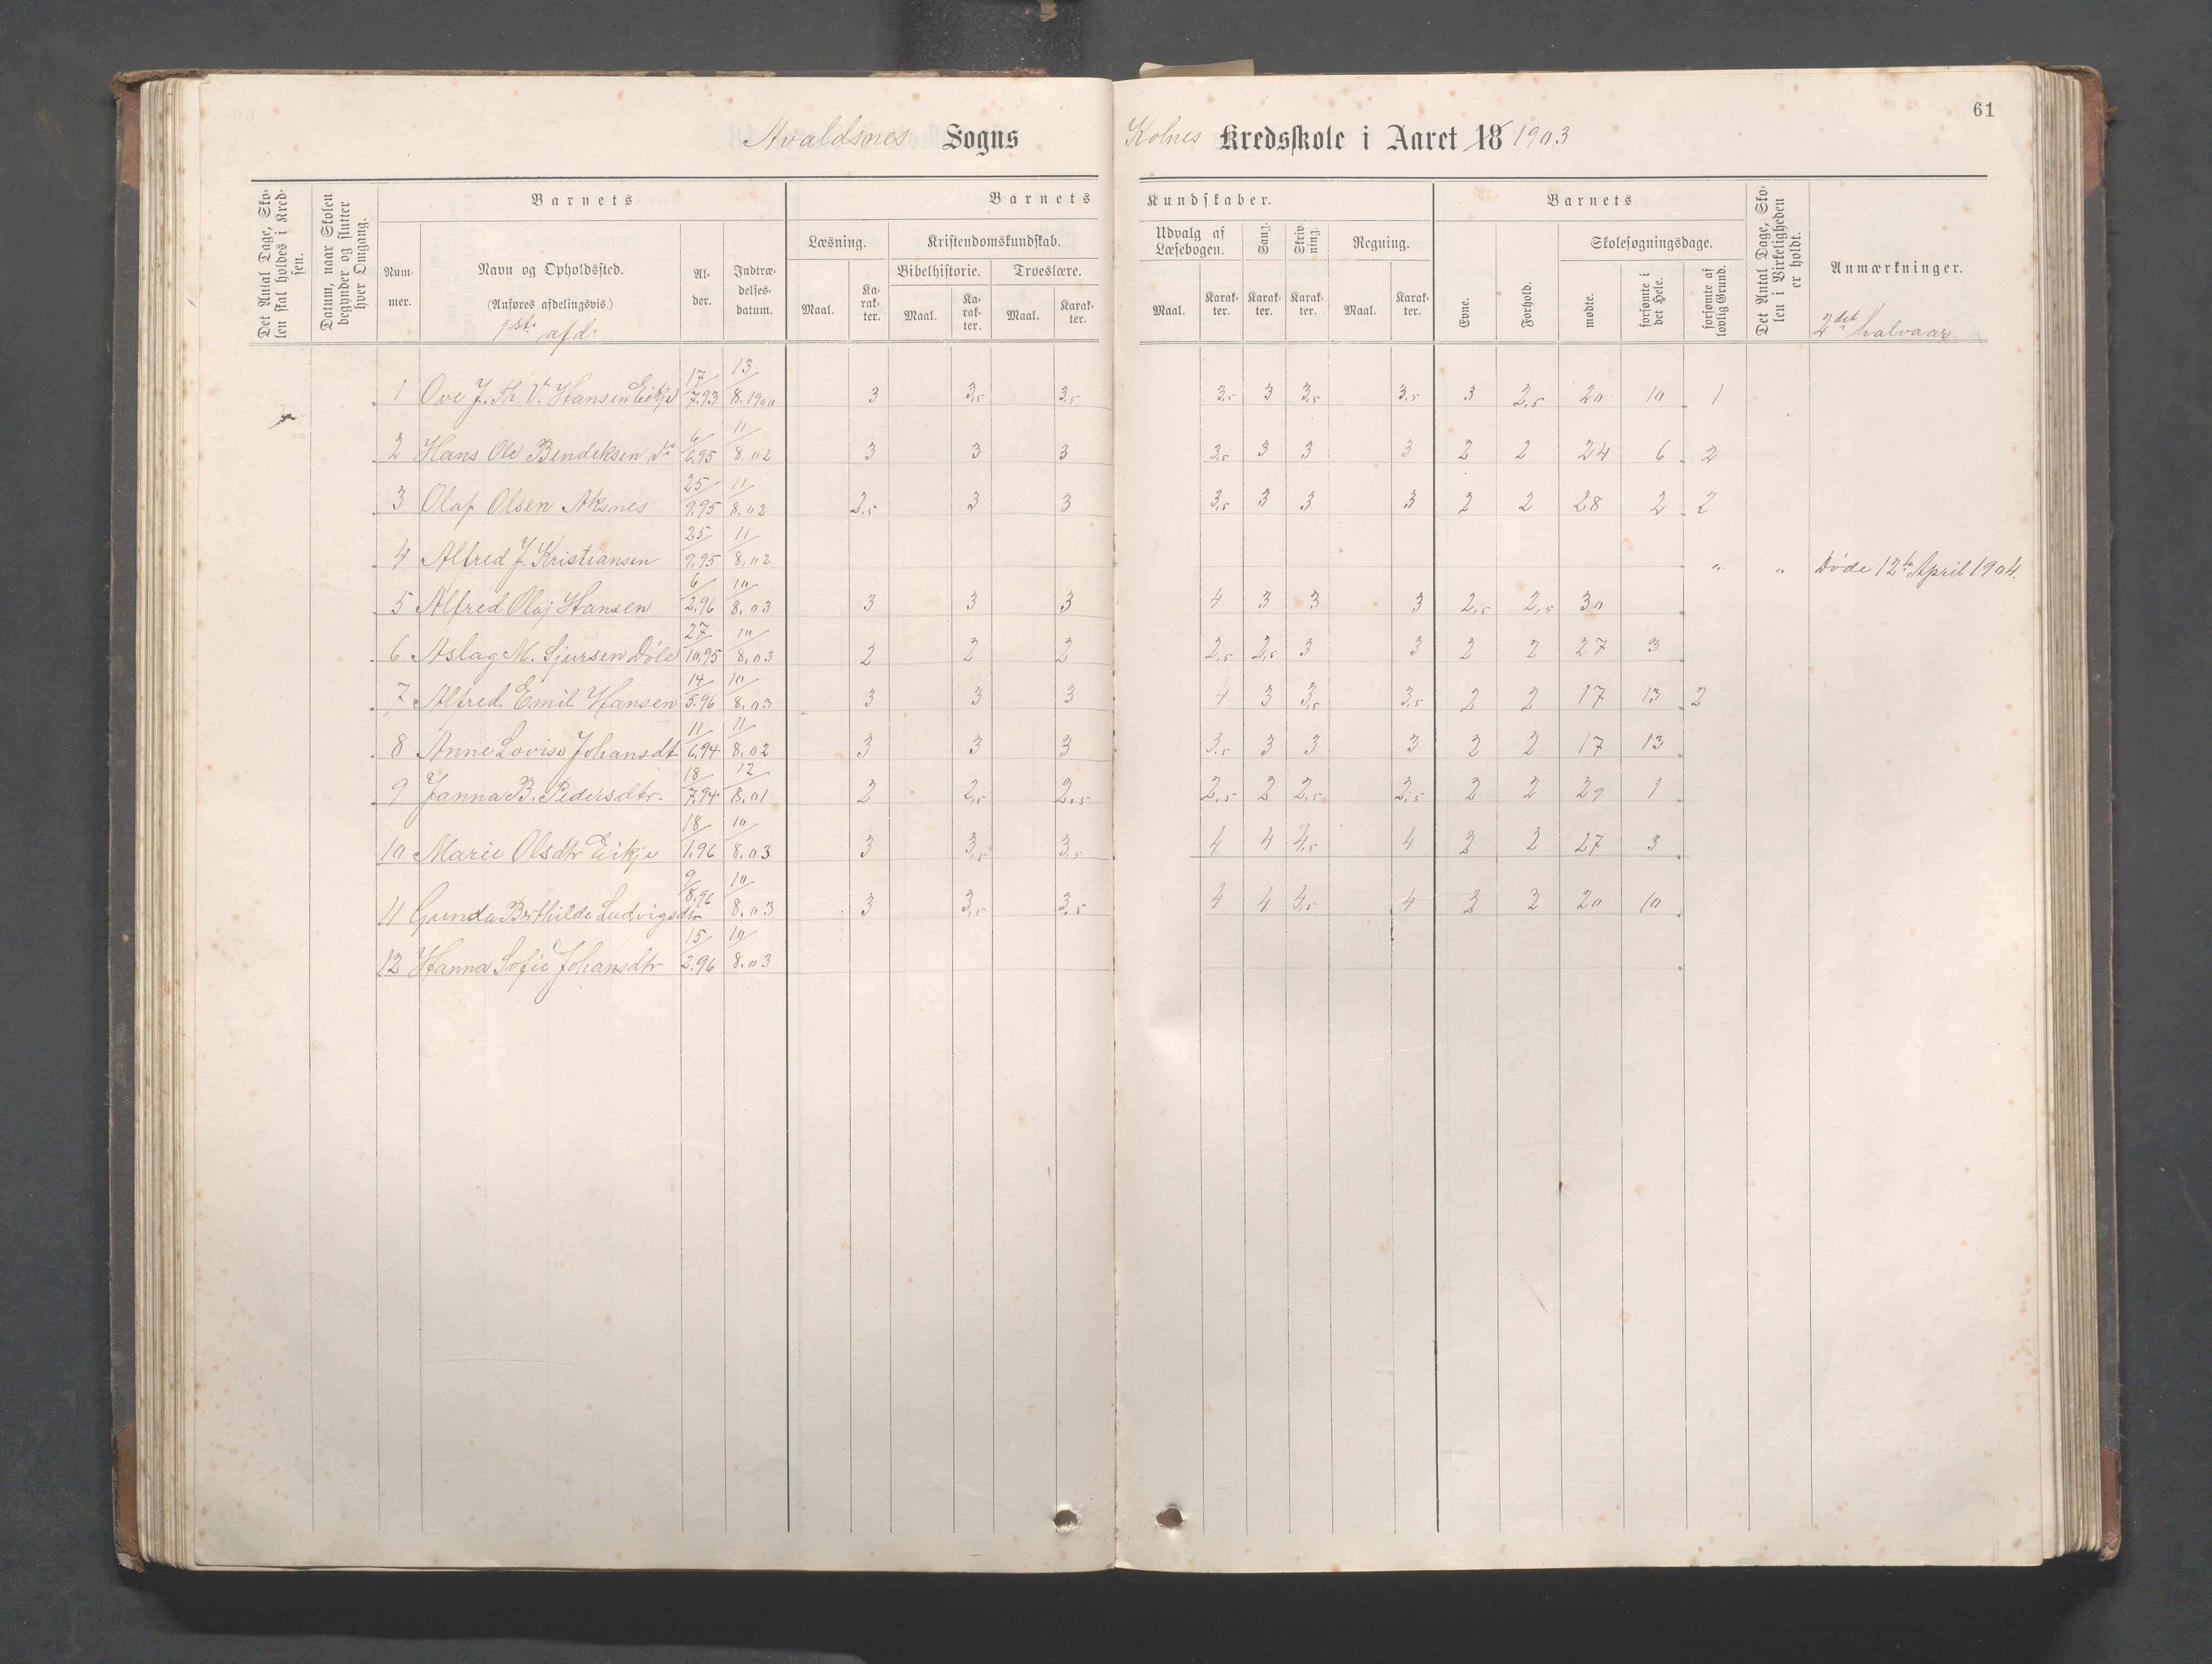 61
Avaldsnes Sogns Kolnes Kredsskole i Aaret 18 1903
Det Antal Dage, Skolen skal holdes i Kredsen.
Datum, naar Skolen begynder og slutter hver Omgang.
Barnets
Barnets Kundskaber.
Barnets
Det Antal Dage, Skolen i Virkeligheden er holdt.
Anmærkninger.
Nummer.
Navn og Opholdssted.
(Anføres afdelingsvis.)
1ste afd:
Alder.
Indtrædelsesdatum.
Læsning.
Kristendomskundskab.
Bibelhistorie.
Troeslære.
Udvalg af Læsebogen.
Sang.
Skrivning.
Regning.
Evne.
Forhold.
Skolesøgningsdage.
mødte.
forsømte i det Hele.
forsømte af lovlig Grund.
Maal. Karakter. Maal. Karakter. Maal. Karakter. Maal. Karakter. Karakter. Karakter. Maal. Karakter.
2det halvaar
1 Ove J. Th. V. Hansen Eikje 17/7.93 13/8.1900 3 3,5 3,5 3,5 3 3,5 3,5 3 2,5 20 10 1
2 Hans Ole Bendiksen do 6/6.95 11/8.02 3 3 3 3,5 3 3 3 2 2 24 6 2
3 Olaf Olsen Aksnes 25/9.95 11/8.02 2,5 3 3 3,5 3 3 3 2 2 28 2 2
4 Alfred J. Kristiansen 25/9.95 11/8.02 " " Døde 12te April 1904.
5 Alfred Olaj Hansen 6/2.96 10/8.03 3 3 3 4 3 3 3 2,5 2,5 30
6 Aslag M. Sjursen Døle 27/10.95 10/8.03 2 2 2 2,5 2,5 3 3 2 2 27 3
7 Alfred Emil Hansen 14/5.96 10/8.03 3 3 3 4 3 3,5 3,5 2 2 17 13 2
8 Anne Lovise Johansdt 11/6.94 11/8.02 3 3 3 3,5 3 3 3 2 2 17 13
9 Janna B. Pedersdtr. 18/7.94 12/8.01 2 2,5 2,5 2,5 2 2,5 2,5 2 2 29 1
10 Marie Olsdtr Eikje 18/1.96 10/8.03 3 3,5 3,5 4 4 4,5 4 2 2 27 3
11 Gunda Berthilde Ludvigsdtr 9/8.96 10/8.03 3 3,5 3,5 4 4 4,5 4 2 2 20 10
12 Hanna Sofie Johansdtr 15/2.96 10/8.03